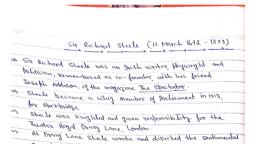 Sir Richard Steele (12 March 1672 - 1729)
Sir Richard Steele was an Irish writer, playwright and
politician, remembered as co-founder with his friend
Joseph Addison, of the magazine The Spectator
Steele became a Whig Member of Parliament in 1713,
for Stockbridge.
Steele was knighted and given responsibility for the
Theatre Royal Drury Lane, London
At Drury Lane Steele wrote and directed the sentimental